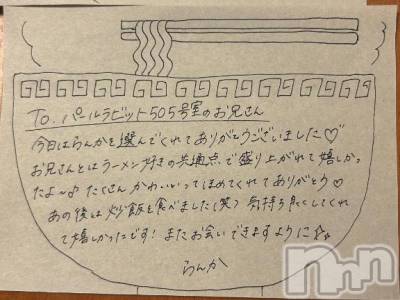 To. パールラビット505号室のお兄さん
今日はらんかを選んでくれてありがとうございました♡
お兄さんとはラーメン好きの共通点で盛り上がれて嬉しかっ
たよ〜♪ たくさん かわいいってほめてくれてありがとう♡
あの後は炒飯を食べました(笑) 気持ち良くしてくれ
て嬉しかったです! またお会いできますように☆
らんか
Nmn